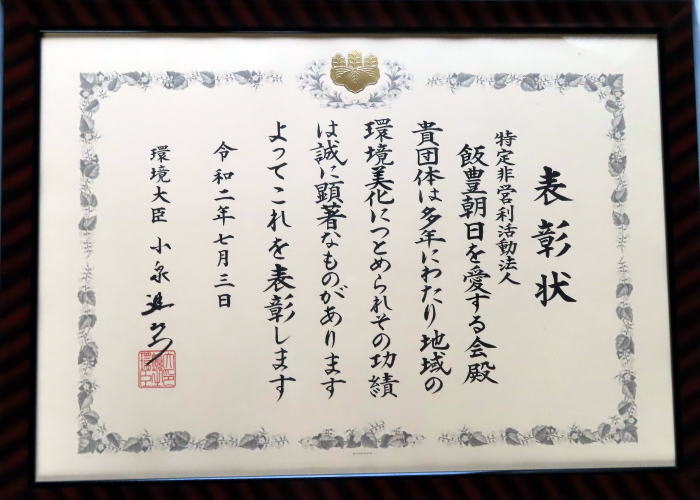 表彰状
特定非営利活動法人
飯豊朝日を愛する会殿
貴団体は多年にわたり地域の
環境美化につとめられその功績
は誠に顕著なものがあります
よってこれを表彰します
令和二年七月三日
環境大臣 小泉進次郎